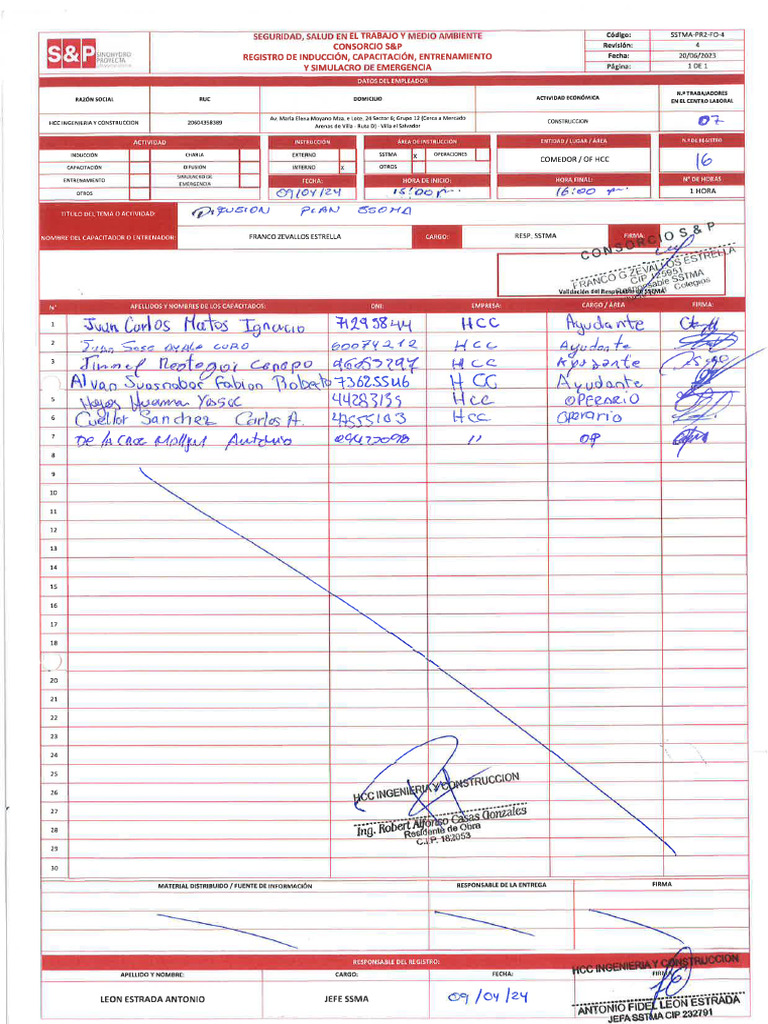 S&P SINOHYDRO PROYECTA
SEGURIDAD, SALUD EN EL TRABAJO Y MEDIO AMBIENTE
CONSORCIO S&P
REGISTRO DE INDUCCIÓN, CAPACITACIÓN, ENTRENAMIENTO
Y SIMULACRO DE EMERGENCIA
Código: SSTMA-PR2-FO-4
Revisión: 4
Fecha: 20/06/2023
Página: 1 DE 1
DATOS DEL EMPLEADOR
RAZÓN SOCIAL RUC DOMICILIO ACTIVIDAD ECONÓMICA N.º TRABAJADORES EN EL CENTRO LABORAL
HCC INGENIERIA Y CONSTRUCCION 20604358389 Av. María Elena Moyano Mza. e Lote. 24 Sector 6; Grupo 12 (Cerca a Mercado Arenas de Villa - Ruta D) - Villa el Salvador CONSTRUCCION 07
ACTIVIDAD INSTRUCCIÓN ÁREA DE INSTRUCCIÓN ENTIDAD / LUGAR / ÁREA N.º DE REGISTRO
INDUCCIÓN CHARLA EXTERNO SSTMA X OPERACIONES COMEDOR / OF HCC 16
CAPACITACIÓN DIFUSIÓN INTERNO X OTROS
ENTRENAMIENTO SIMULACRO DE EMERGENCIA FECHA: HORA DE INICIO: HORA FINAL: N° DE HORAS
OTROS 09/04/24 15:00 pm. 16:00 pm 1 HORA
TÍTULO DEL TEMA O ACTIVIDAD: DIFUSION PLAN SSOMA
NOMBRE DEL CAPACITADOR O ENTRENADOR: FRANCO ZEVALLOS ESTRELLA CARGO: RESP. SSTMA FIRMA:
CONSORCIO S & P
FRANCO G ZEVALLOS ESTRELLA
CIP 125951
Responsable SSTMA
Colegios
Validación del Responsable de SSTMA
N° APELLIDOS Y NOMBRES DE LOS CAPACITADOS: DNI: EMPRESA: CARGO / ÁREA FIRMA:
1 Juan Carlos Matos Ignacio 71295844 HCC Ayudante
2 Juan Jose 60074212 HCC Ayudante
3 HCC Ayudante
Alvan Suasnabar Fabian Roberto 73625546 HCC Ayudante
5 Hoyos Huaman 44283139 HCC OPERARIO
6 Cuellor Sanchez Carlos A. 47555103 Hcc operario
7 De la Cruz Antonio 09422098 " OP
8
9
10
11
12
13
14
15
16
17
18
20
21
22
23
24
25
26
27
28
29
30
HCC INGENIERIA Y CONSTRUCCION
Ing. Robert Alfonso Casas Gonzales
Residente de Obra
C.I.P. 182053
MATERIAL DISTRIBUIDO / FUENTE DE INFORMACIÓN RESPONSABLE DE LA ENTREGA FIRMA
RESPONSABLE DEL REGISTRO:
APELLIDO Y NOMBRE: CARGO: FECHA: FIRMA
LEON ESTRADA ANTONIO JEFE SSMA 09/04/24
HCC INGENIERIA Y CONSTRUCCIÓN
ANTONIO FIDEL LEON ESTRADA
JEFA SSTMA CIP 232791